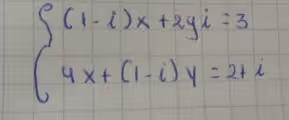 (1-i)x+2yi=3
4x+(1-i)y=2+i